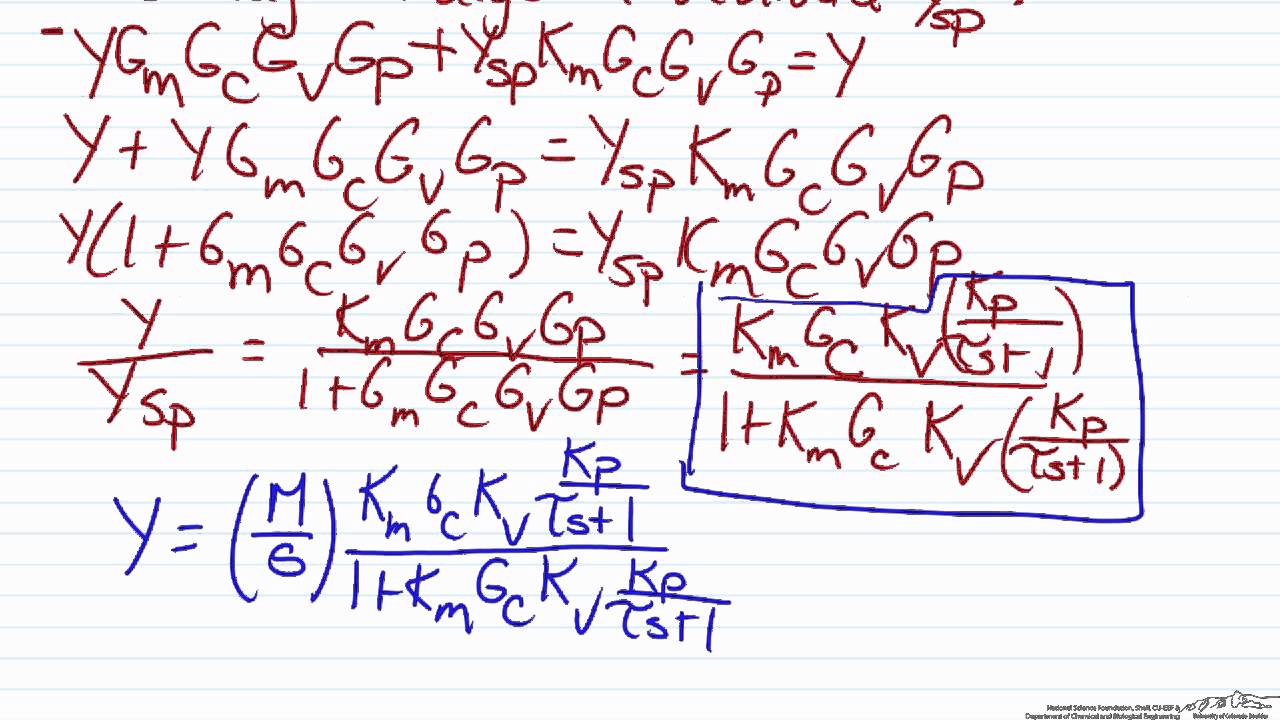 Y_sp
-YG_mG_cG_vG_p+Y_spK_mG_cG_vG_p=Y
Y+YG_mG_cG_vG_p=Y_spK_mG_cG_vG_p
Y(1+G_mG_cG_vG_p)=Y_spK_mG_cG_vG_p
Y/Y_sp = K_mG_cG_vG_p/(1+G_mG_cG_vG_p) = K_mG_cK_v(K_p/(τs+1))/(1+K_mG_cK_v(K_p/(τs+1)))
Y=(M/s) (K_mG_cK_v K_p/(τs+1))/(1+K_mG_cK_v K_p/(τs+1))
National Science Foundation, Shell, CU-EEF &
Department of Chemical and Biological Engineering
University of Colorado Boulder